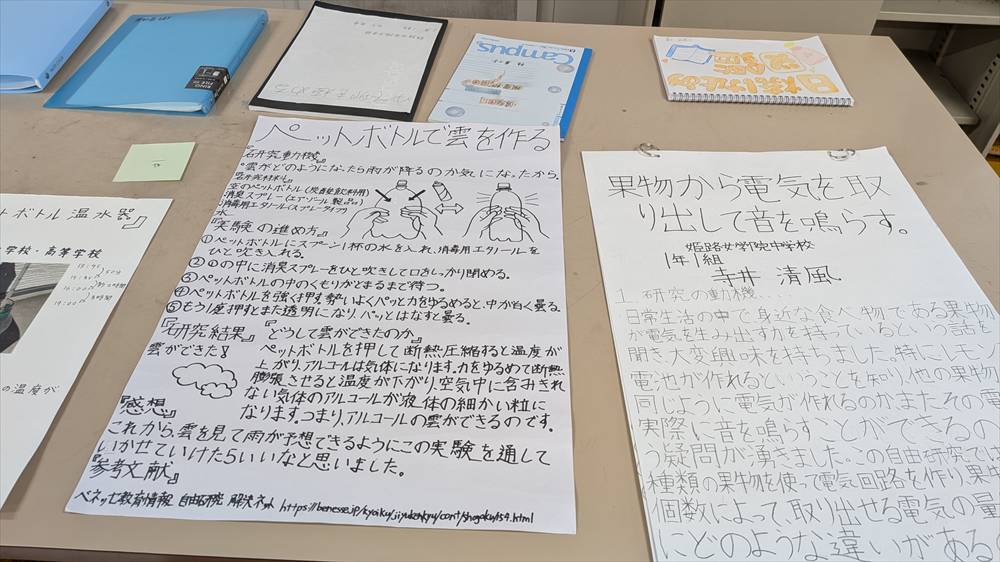 Campus
ットボトル温水器』
学校・高等学校
の温度が
ペットボトルで雲を作る
『研究動機』
・雲がどのようになったら雨が降るのか気になったから。
『研究材料』
空のペットボトル(炭酸飲料用)
消臭スプレー(エアゾール製品)
消毒用エタノール(スプレータイプ)
水
『実験の進め方』
①ペットボトルにスプーン1杯の水を入れ、消毒用エタノールを
ひと吹き入れる。
②①の中に消臭スプレーをひと吹きして口をしっかり閉める。
③ペットボトルの中のくもりがとまるまで待つ。
④ペットボトルを強く押す勢いよくパッと力をゆるめると、中が白く曇る。
⑤もう1度押すとまた透明になり、パッとはなすと曇る。
『研究結果』
雲ができた!
『どうして雲ができたのか』
ペットボトルを押して断熱圧縮すると温度が
上がり、アルコールは気体になります。力をゆるめて断熱
膨張させると温度が下がり、空気中に含みきれ
ない気体のアルコールが液体の細かい粒に
なります。つまり、アルコールの雲ができるのです。
『感想』
これから、雲を見て雨が予想できるようにこの実験を通して
いかせていけたらいいなと思いました。
『参考文献』
ベネッセ教育情報 自由研究 解決ネット https://benesse.jp/kyoiku/jiyukenkyu/cont/shogaku/154.html
果物から電気を取
り出して音を鳴らす。
姫路女学院中学校
1年1組
寺井 清風
1. 研究の動機....
日常生活の中で身近な食べ物である果物
が電気を生み出す力を持っているという話を
聞き大変興味を持ちました。特にレモン
電池が作れるということを知り、他の果物
同じように電気が作れるのかまたその電
実際に音を鳴らすことができるの
う疑問が湧きました。この自由研究では
種類の果物を使って電気回路を作り、果物
個数によって、取り出せる電気の量
にどのような違いがある